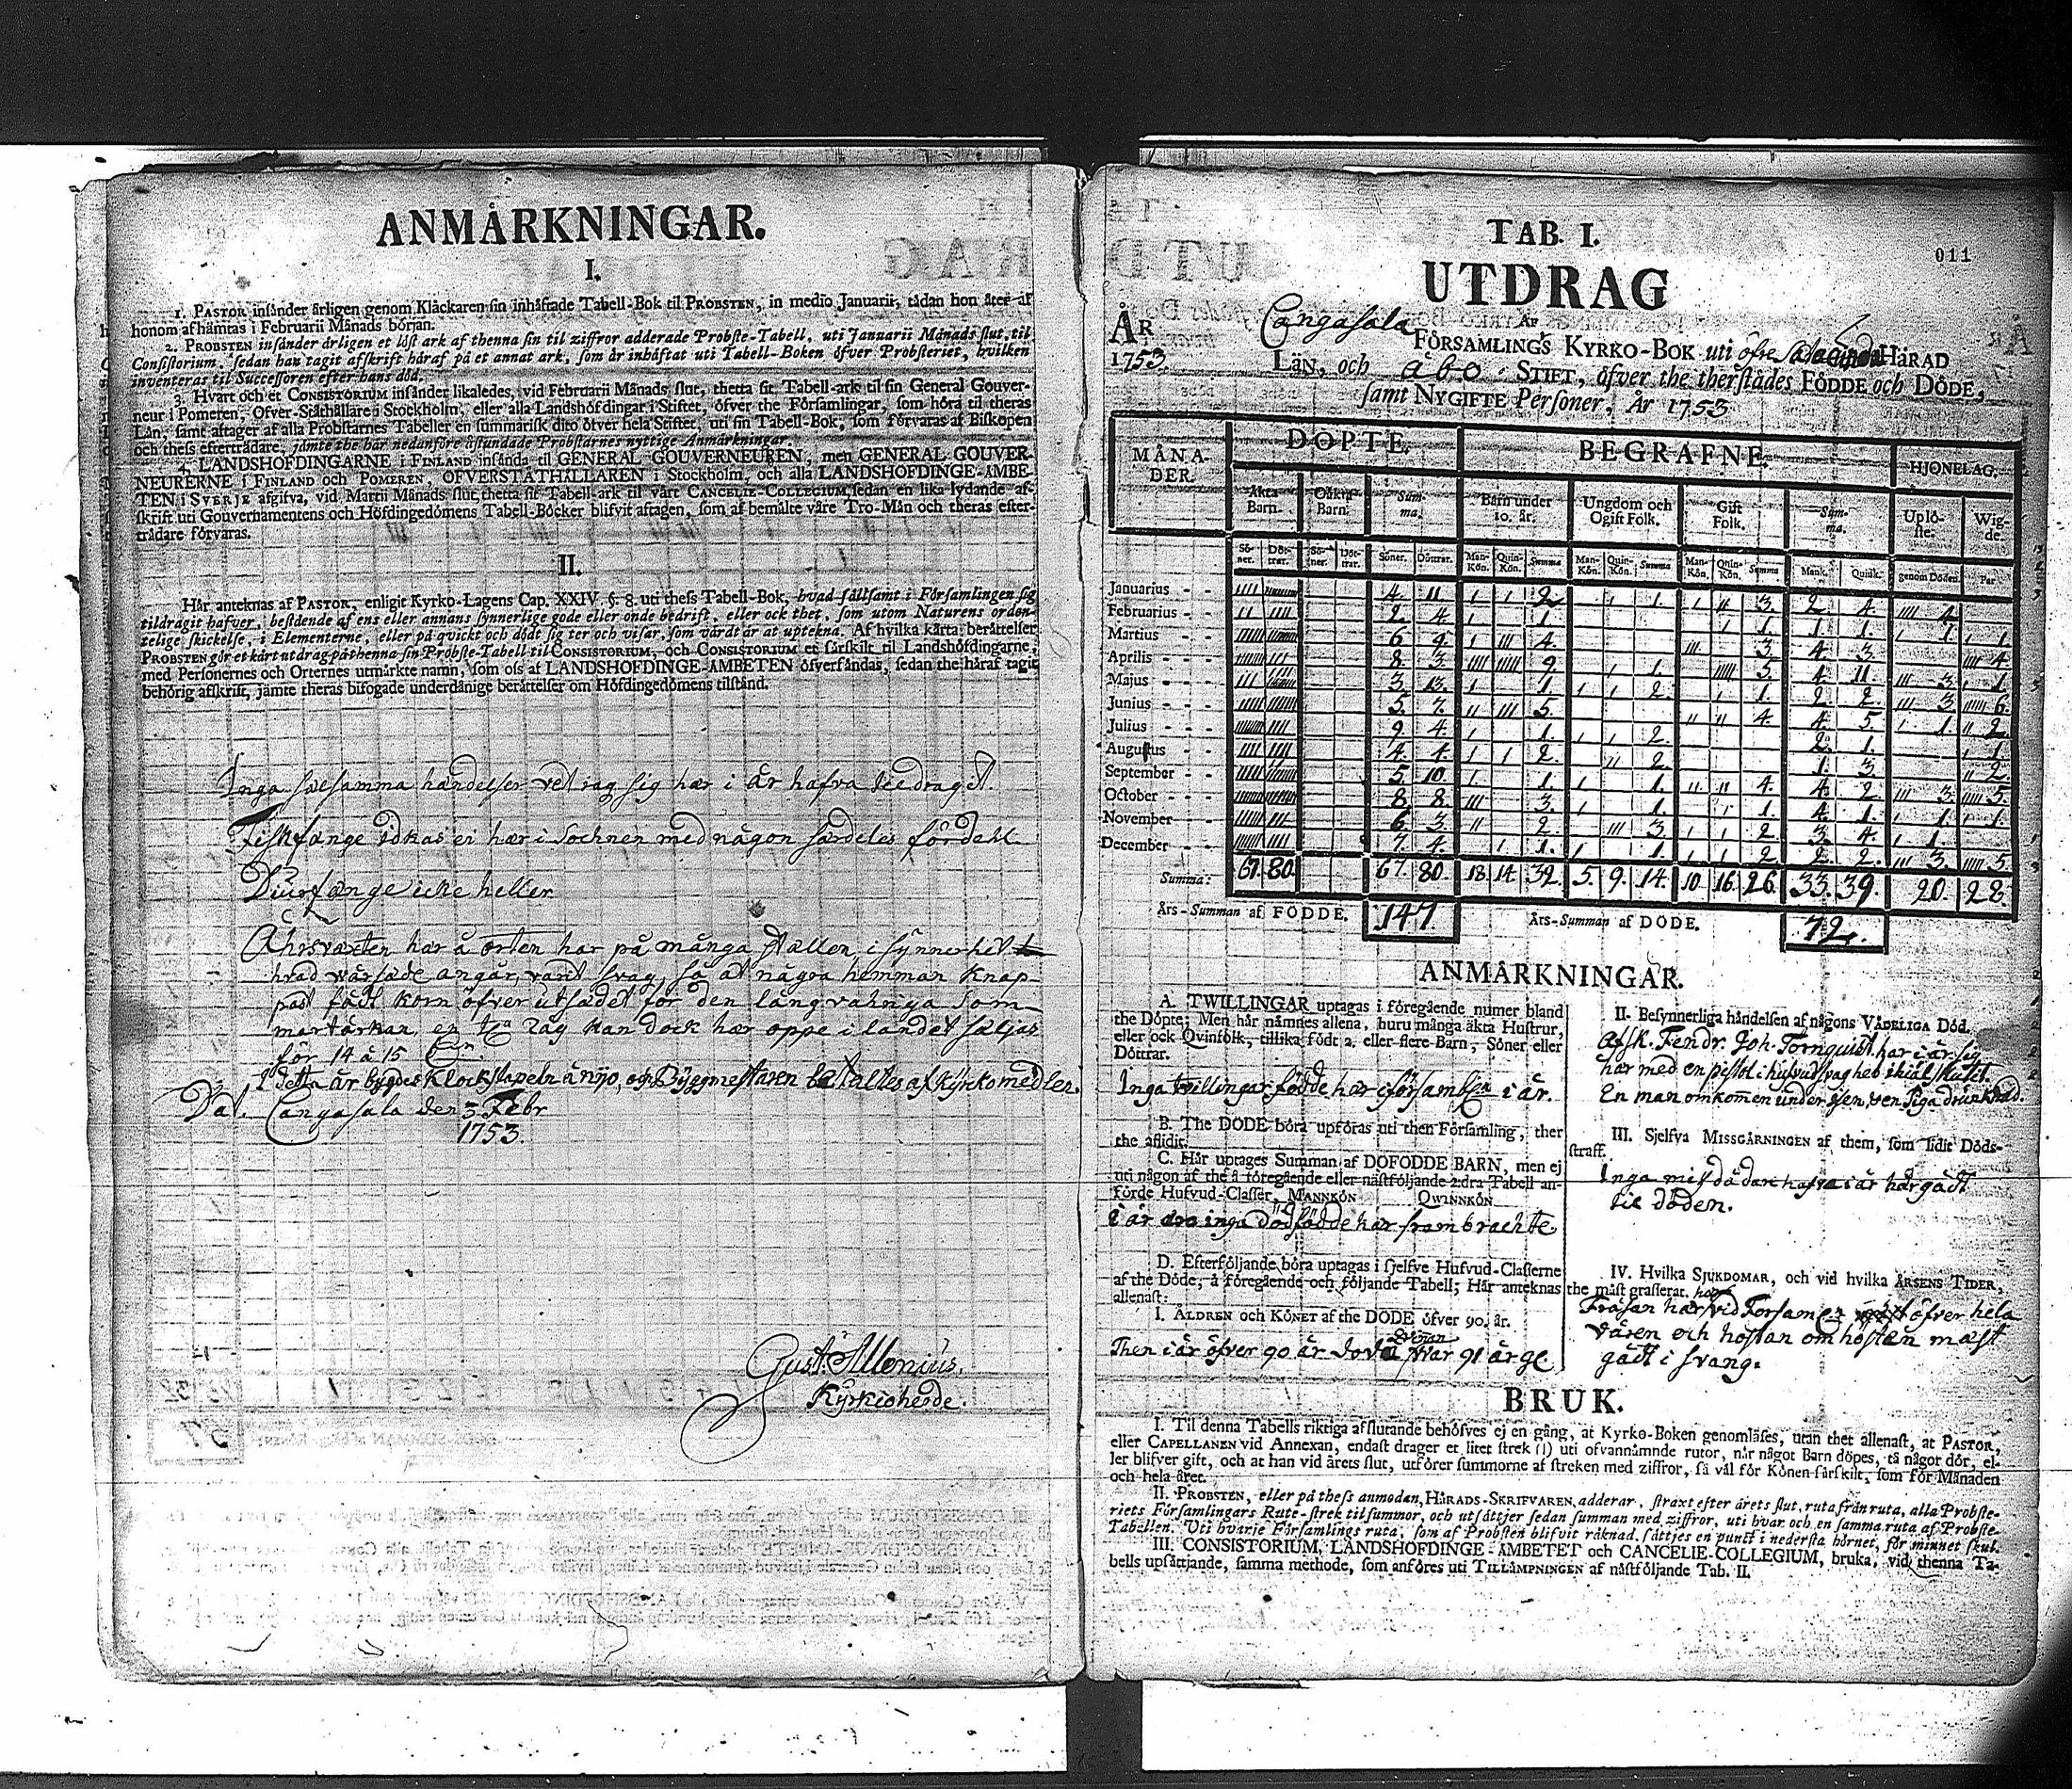 ANMÅRKNINGAR.
I.
1. PASTOR insånder årligen genom Klåckaren sin inhåftade Tabell-Bok til PROBSTEN, in medio Januarii, tådan hon åter af
honom afhåmtas i Februarii Månads början.
2. PROBSTEN insånder årligen et låst ark af thenna sin til ziffror adderade Probste-Tabell, uti Januarii Månads slut, til
Consistorium, sedan han tagit afskrift håraf på et annat ark, som år inhåftat uti Tabell-Boken öfver Probsteriet, hvilken
inventeras til Successoren efter hans död.
3. Hvart och et CONSISTORIUM insånder likaledes, vid Februarii Månads slut, thetta sit Tabell-ark til sin General Gouver-
neur i Pomeren, Öfver-Ståthållare i Stockholm, eller alla Landshöfdingar i Stiftet, öfver the Församlingar, som höra til theras
Lån, samt aftager af alla Probstarnes Tabeller en summarisk dito öfver hela Stiftet, uti sin Tabell-Bok, som förvaras af Biskopen
och thess eftertrådare, jåmte the hår nedanföre åstundade Probstarnes nyttige Anmårkningar.
4. LANDSHÖFDINGARNE i FINLAND insånda til GENERAL GOUVERNEUREN, men GENERAL GOUVER-
NEURERNE i FINLAND och POMEREN, ÖFVERSTÅTHÅLLAREN i Stockholm, och alla LANDSHÖFDINGE-ÅMBE-
TEN i SVERJE afgifva, vid Martii Månads slut, thetta sit Tabell-ark til vårt CANCELIE-COLLEGIUM, sedan en lika lydande af-
skrift uti Gouvernamentens och Höfdingedömens Tabell-Böcker blifvit aftagen, som af bemålte våre Tro-Mån och theras efter-
trådare förvaras.
II.
Hår anteknas af PASTOR, enligit Kyrko-Lagens Cap. XXIV §. 8. uti thess Tabell-Bok, hvad sållsamt i Församlingen sig
tildragit hafver, bestående af ens eller annans synnerlige gode eller onde bedrift, eller ock thet, som utom Naturens orden-
telige skickelse, i Elementerne, eller på qvickt och dödt sig ter och visar, som vårdt år at uptekna. Af hvilka kårta beråttelser
PROBSTEN gör et kårt utdrag på thenna sin Probste-Tabell til CONSISTORIUM, och CONSISTORIUM et sårskilt til Landshöfdingarne,
med Personernes och Orternes utmårkte namn, som oss af LANDSHÖFDINGE-ÅMBETEN öfversåndas, sedan the håraf tagit
behörig afskrift, jåmte theras bifogade underdånige beråttelser om Höfdingedömens tilstånd.
Inga sælsamma händelser vet iag sig här i år hafva tildragit.
Fiskfänge idkas ei här i sochnen med någon särdeles fördehl.
Diurfänge icke heller
Åhrsväxten här å orten har på många ställen, i synnerhet
hvad wårsäde angår, varit svag, så at några hemman knap-
past fådt korn öfver utsädet för den långvahriga som-
martårkan, en Råg kan dock här oppe i landet säljas
för 14 à 15
I detta år bygdes Klockstapeln å nyo, och Byggmestaren betaltes af Kyrkomedlen.
Dat. Cangasala den 3 Febr
1753.
Gust. Allenius.
Kyrkioherde.
011
TAB. I.
UTDRAG
AF
ÅR 1753. Cangasala FÖRSAMLINGS KYRKO-BOK uti öfre HÅRAD
LÅN, och åbo STIFT, öfver the therstådes FÖDDE och DÖDE,
samt NYGIFTE Personer, År 1753
MÅNADER. DÖPTE. BEGRAFNE. HJONELAG.
Åkta Barn. Oåkta Barn. Summa. Barn under 10. år. Ungdom och Ogift Folk. Gift Folk. Summa. Uplöste. Wigde.
Söner. Döttrar. Söner. Döttrar. Söner. Döttrar. Man-Kön. Quin-Kön. Summa Man-Kön. Quin-Kön. Summa Man-Kön. Quin-Kön. Summa Mank. Quink. genom Döden. Par
Januarius 4. 11. 2 1. 3. 2. 4. 4.
Februarius 2. 4. 1. 1. 1. 1. 1. 1.
Martius 6. 9. 4. 3. 4. 3. 4.
Aprilis 8. 3. 9. 1. 5. 4. 11. 3. 1.
Majus 3. 13. 1. 2. 1. 2. 2. 3. 6.
Junius 5. 7. 5. 4. 4. 5. 1. 2.
Julius 9. 4. 1. 2. 2. 1. 1.
Augustus 4. 4. 2. 2. 1. 3. 2.
September 5. 10. 1. 1. 4. 4. 2. 3. 5.
October 8. 8. 3. 1. 1. 4. 1. 1. 1.
November 6. 3. 2. 3. 2. 3. 4. 1.
December 7. 4. 1. 1. 2. 2. 2. 3. 5.
Summa: 67. 80. 67. 80. 18. 14. 32. 5. 9. 14. 10. 16. 26. 33. 39. 20. 28.
Års-Summan af FÖDDE. 147. Års-Summan af DÖDE. 72.
ANMÅRKNINGAR.
A. TWILLINGAR uptagas i föregående numer bland
the Döpte; Men hår nåmnes allena, huru många åkta Hustrur,
eller ock Qvinfolk, tillika födt 2. eller flere Barn, Söner eller
Döttrar.
Inga twillingar födde här i församlen i år.
B. The DÖDE böra upföras uti then Församling, ther
the aflidit.
C. Hår uptages Summan af DÖDFÖDDE BARN, men ej
uti någon af the å föregående eller nåstföljande 2:dra Tabell an-
förde Hufvud-Classer, MANNKÖN QWINNKÖN
i år äro inga dödfödde här frambrachte.
D. Efterföljande böra uptagas i sjelfve Hufvud-Classerne
af the Döde, å föregående och följande Tabell; Hår anteknas
allenast:
I. ÅLDREN och KÖNET af the DÖDE öfver 90. år.
Then i år öfver 90 år var 91 år ge
II. Besynnerliga håndelsen af någons VÅDELIGA Död.
Afsk. Fendr. Joh. Tornquist har i år sig
här med en pistol i hufvudsvaghet ihiäl skutit.
En man omkommen under isen, 
III. Sjelfva MISSGÅRNINGEN af them, som lidit Döds-
straff.
Inga missdådare hafva i år här gådt
til döden.
IV. Hvilka SJUKDOMAR, och vid hvilka ÅRSENS TIDER,
the måst grasserat.
Frässan har vid Forsamlen öfver hela
våren och höstan om hösten mäst
gådt i svang.
BRUK.
I. Til denna Tabells riktiga afslutande behöfves ej en gång, at Kyrko-Boken genomlåses, utan thet allenast, at PASTOR,
eller CAPELLANEN vid Annexan, endast drager et litet strek (I) uti ofvannåmnde rutor, når något Barn döpes, få någor dör, el-
ler blifver gift, och at han vid årets slut, utförer summorne af streken med ziffror, så vål för Könen sårskilt, som för Månaden
och hela året.
II. PROBSTEN, eller på thess anmodan, HÅRADS-SKRIFVAREN, adderar, straxt efter årets slut, ruta från ruta, alla Probste-
riets Församlingars Rute-strek til summor, och utsåttjer sedan summan med ziffror, uti hvar och en samma ruta af Probste-
Tabellen. Uti hvarje Församlings ruta, som af Probsten blifvit råknad, såttjes en punct i nedersta hörnet, för minnet skul.
III. CONSISTORIUM, LANDSHÖFDINGE-ÅMBETET och CANCELIE-COLLEGIUM, bruka, vid thenna Ta-
bells upsåttjande, samma methode, som anföres uti TILLÅMPNINGEN af nåstföljande Tab. II.